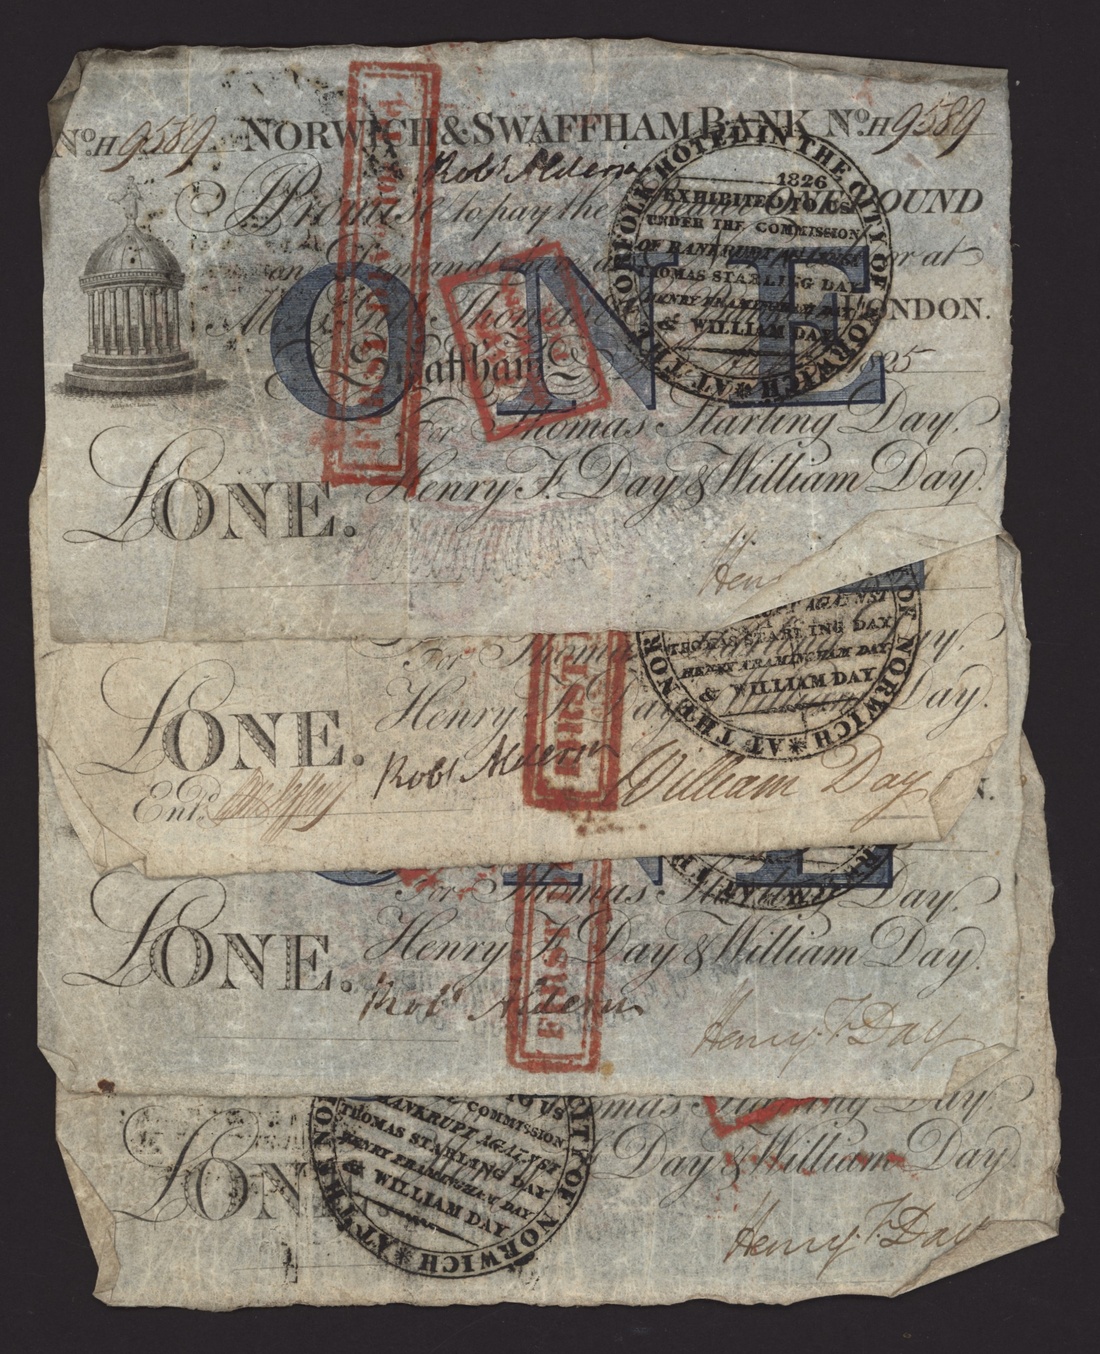 No. H 9589 NORWICH & SWAFFHAM BANK No. H 9589
Robt Aldern
I Promise to pay the ONE POUND
on Demand or at
LONDON.
Swaffham
ONE
For Thomas Starling Day,
Henry F. Day & William Day.
£ONE.
Hen
FIRST DIVIDEND
AT THE NORFOLK HOTEL IN THE CITY OF NORWICH
1826
EXHIBITED TO US
UNDER THE COMMISSION
OF BANKRUPT AGAINST
THOMAS STARLING DAY
HENRY FRAMINGHAM DAY
& WILLIAM DAY
For Thomas
Henry F. Day Day.
£ONE.
Robt Aldern William Day
Entd.
FIRST
AT THE NOR OF NORWICH
AGAINST
THOMAS STARLING DAY
HENRY FRAMINGHAM DAY
& WILLIAM DAY
N.
For Thomas Starling Day,
Henry F. Day & William Day.
£ONE.
Robt Aldern
Henry F. Day
FIRST
Starling Day,
Day & William Day.
£ON
Henry F. Day
AT THE NO CITY OF NORWICH
TO US
COMMISSION
BANKRUPT AGAINST
THOMAS STARLING DAY
HENRY FRAMINGHAM DAY
& WILLIAM DAY